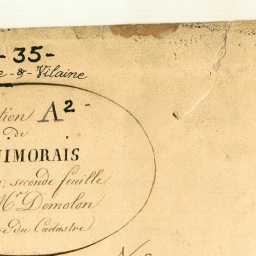 - 35 -
e - & - Vilaine
tion A²
de
IMORAIS
seconde feuille
Mr Demolon
re du Cadastre